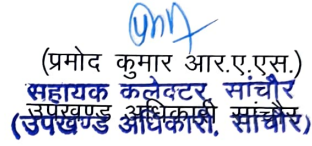 (प्रमोद कुमार आर.ए.एस.)
सहायक कलेक्टर, सांचौर
उपखण्ड अधिकारी सांचौर
(उपखण्ड अधिकारी, सांचौर)